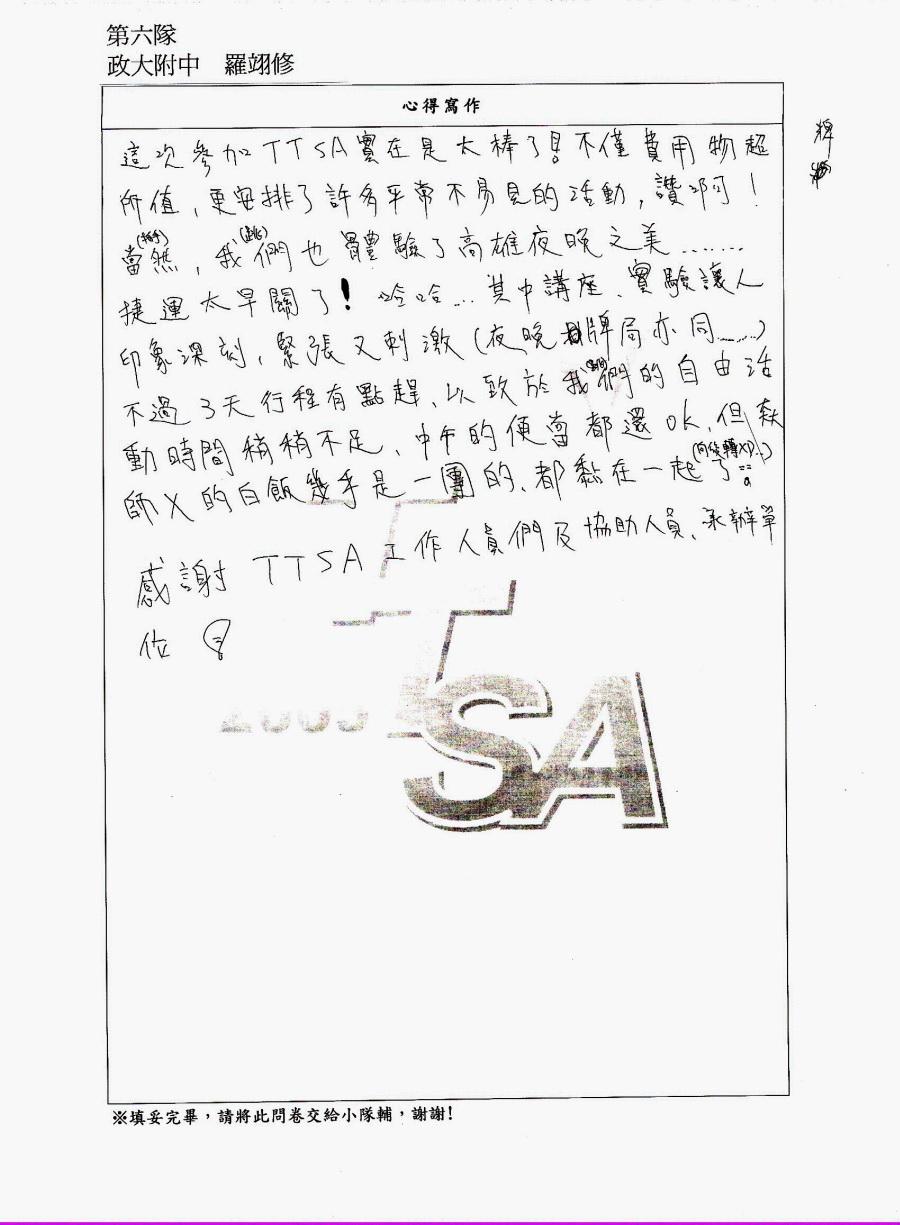 第六隊
政大附中 羅翊修
心得寫作
這次參加TTSA實在是太棒了!不僅費用物超
所值,更安排了許多平常不易見的活動,讚啊!
當然,我們也體驗了高雄夜晚之美......
捷運太早關了! 哈哈...其中講座、實驗讓人
印象深刻,緊張又刺激(夜晚牌局亦同......)
不過3天行程有點趕、以致於我們的自由活
動時間稍稍不足、中午的便當都還OK,但
師父的白飯幾乎是一團的、都黏在一起了
(向後轉XD..)
感謝TTSA工作人員們及協助人員、承辦單
位
牌
TTSA
※填妥完畢,請將此問卷交給小隊輔,謝謝!